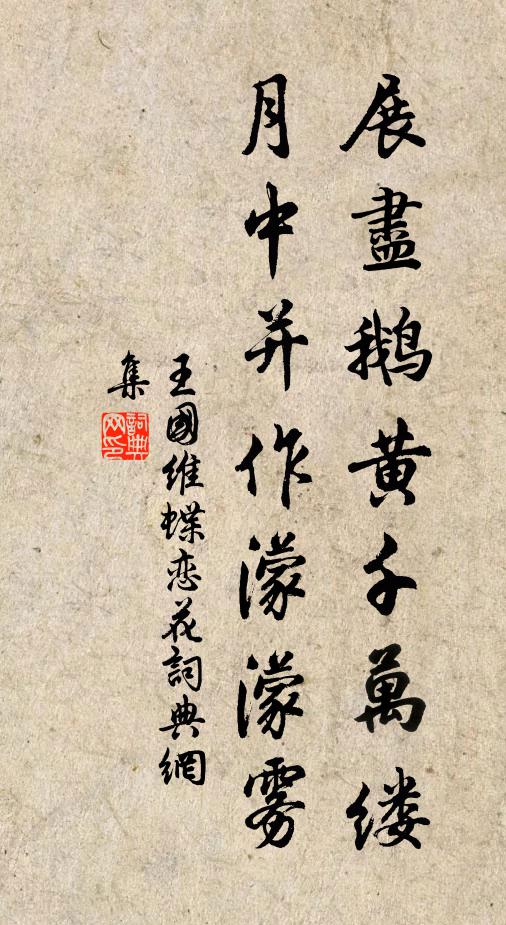 展盡鹅黄千萬缕
月中并作濛濛雾
王國維蝶恋花詞典網
集
詞典
网印